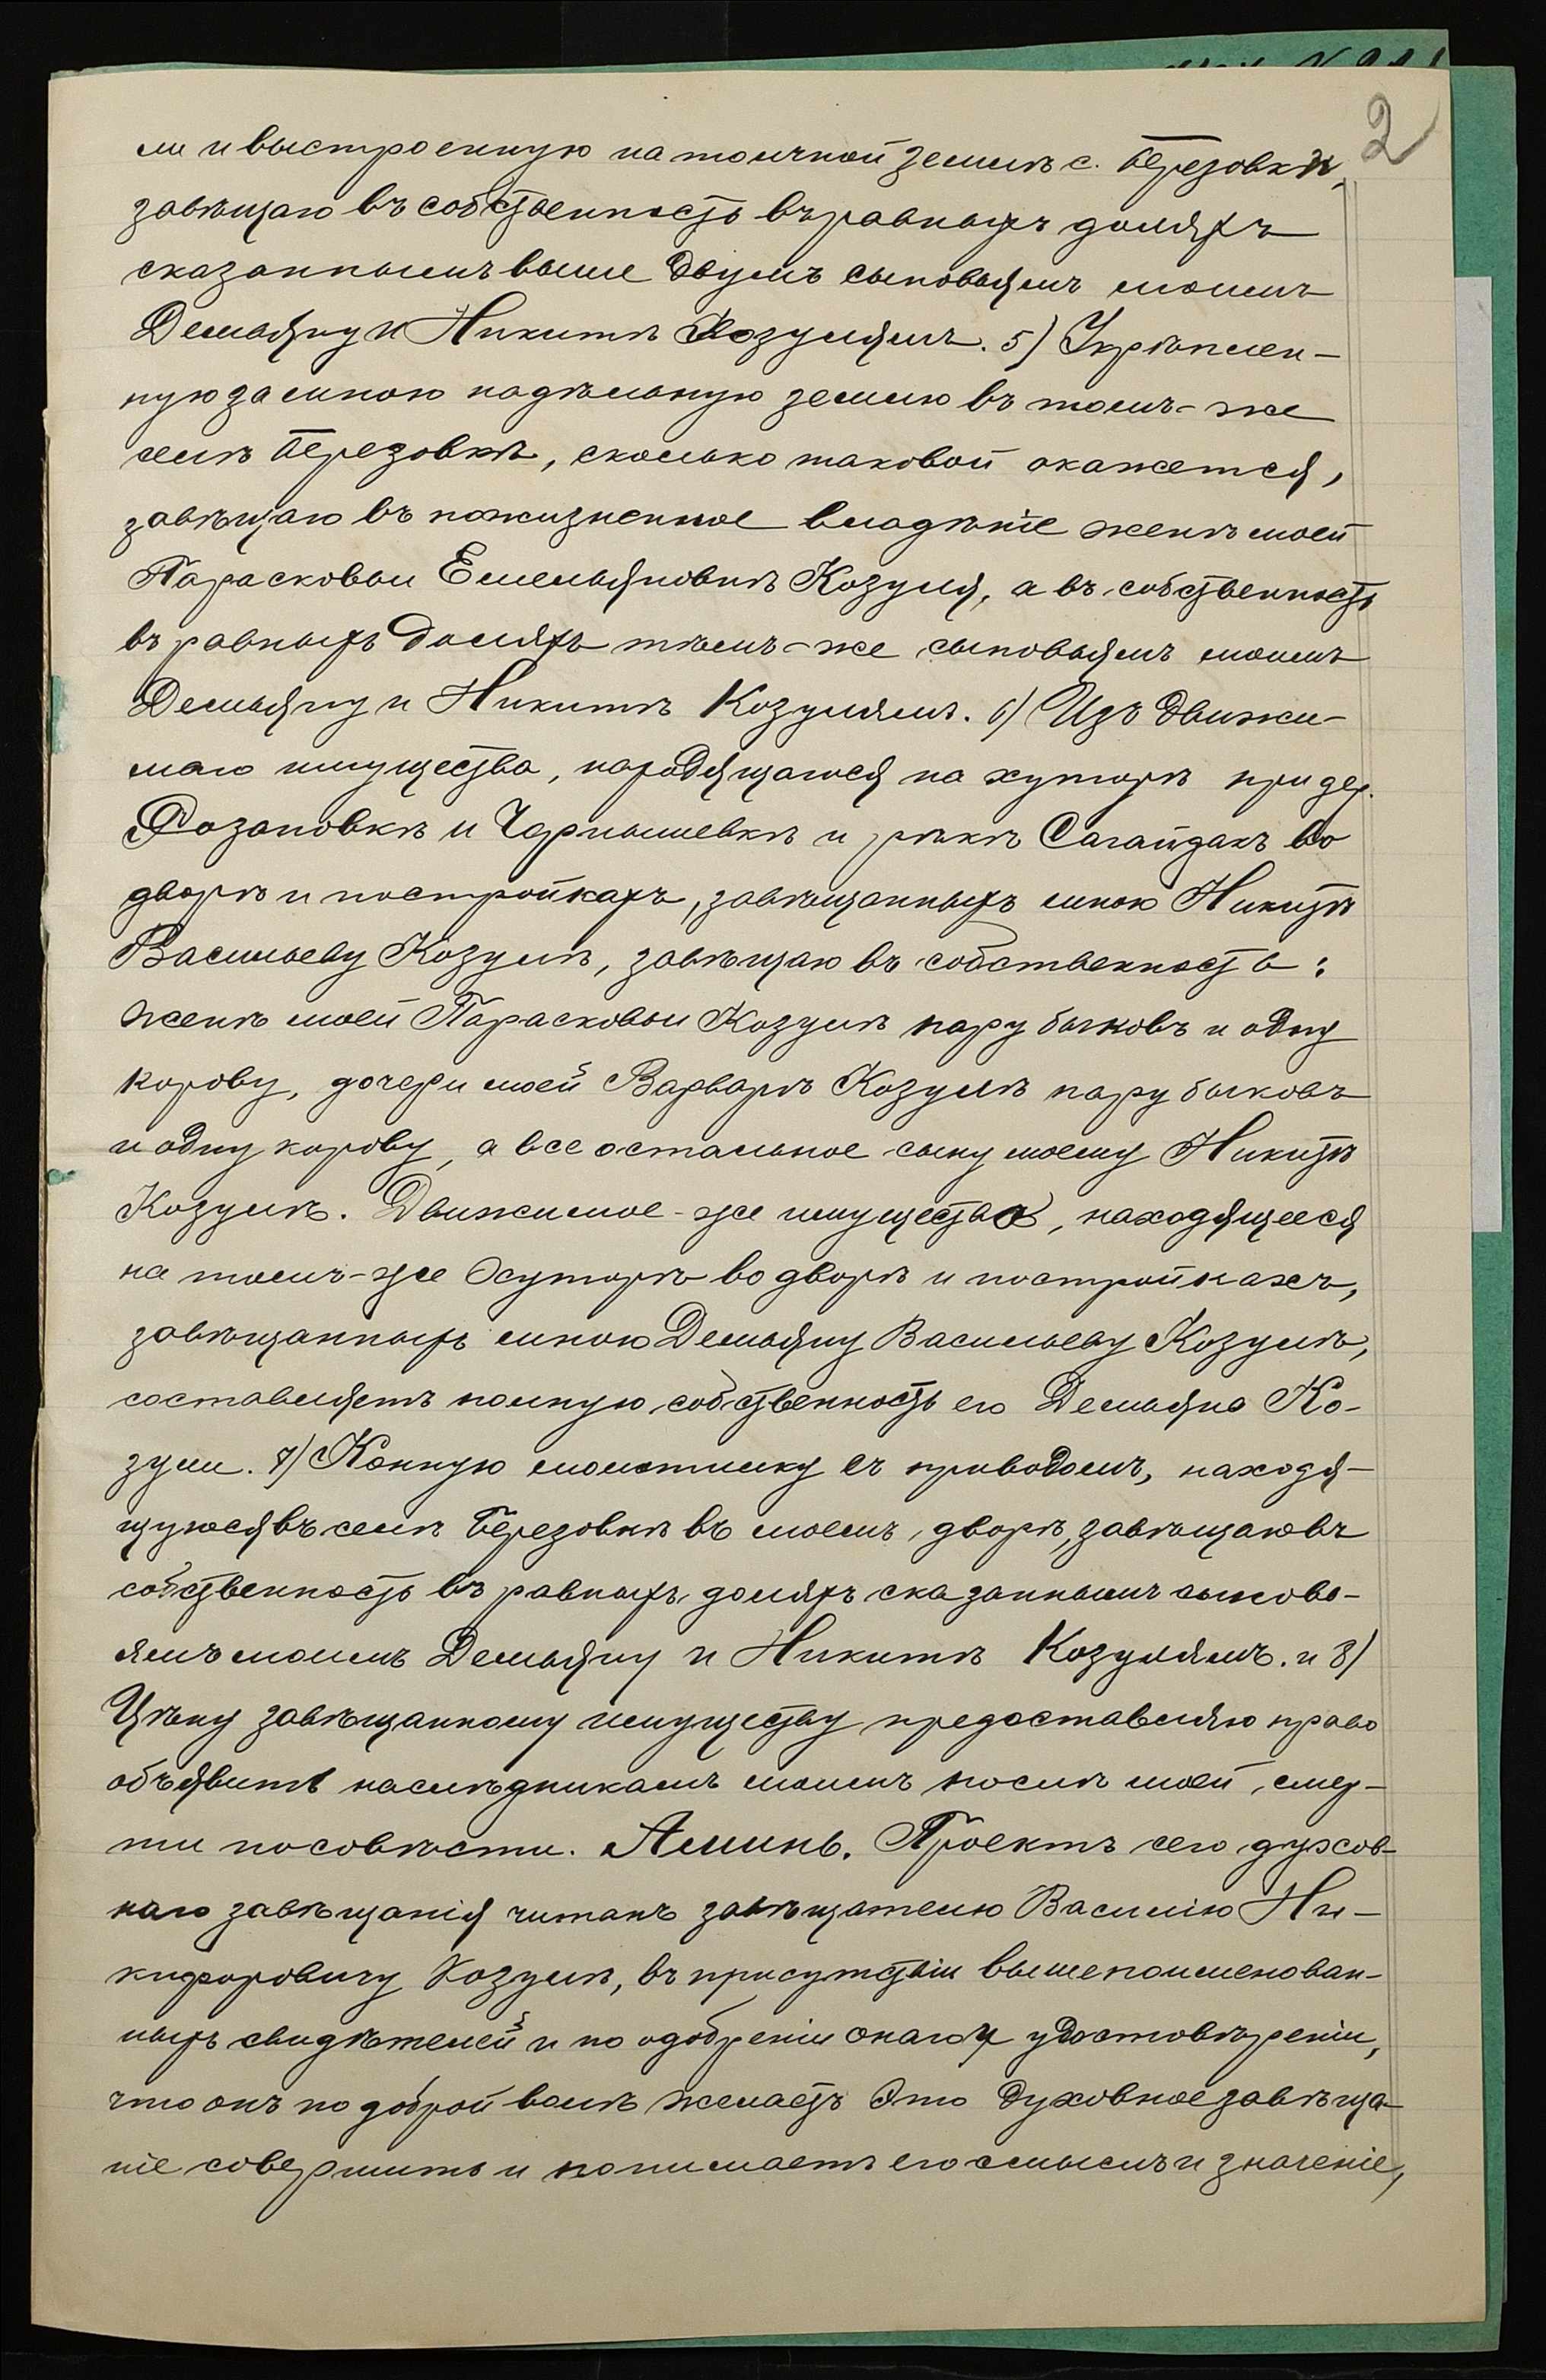 2
ли и выстроенную на толичной земли с. Березовки,
завѣщаю въ собственность въ равныхъ доляхъ
сказаннымъ выше двумъ сыновьямъ моимъ
Демьяну и Никитѣ Козулямъ. 5) Укрѣплен-
ную за мною надѣльную землю въ томъ-же
селѣ Березовкѣ, сколько таковой окажется,
завѣщаю въ пожизненное владѣніе женѣ моей
Парасковьи Емельяновнѣ Козуля, а въ собственность
въ равныхъ доляхъ тѣмъ-же сыновьямъ моимъ
Демьяну и Никитѣ Козулямъ. 6) Изъ движи-
маго имущества, находящагося на хуторѣ при дер.
Розановкѣ и Чернышевкѣ и рѣкѣ Сагайдакъ во
дворѣ и постройкахъ, завѣщанныхъ мною Никитѣ
Васильеву Козулѣ, завѣщаю въ собственность:
женѣ моей Парасковьи Козулѣ пару быковъ и одну
корову, дочери моей Варварѣ Козулѣ пару быковъ
и одну корову, а все остальное сыну моему Никитѣ
Козулѣ. Движимое-же имущество, находящееся
на томъ-же хуторѣ во дворѣ и постройкахъ,
завѣщанныхъ мною Демьяну Васильеву Козулѣ,
составляетъ полную собственность его Демьяна Ко-
зули. 7) Конную молотилку съ приводомъ, находя-
щуюся въ селѣ Березовкѣ въ моемъ дворѣ, завѣщаю въ
собственность въ равныхъ доляхъ сказаннымъ сыновь-
ямъ моимъ Демьяну и Никитѣ Козулямъ. и 8)
Цѣну завѣщанному имуществу предоставляю право
объявить наслѣдникамъ моимъ послѣ моей смер-
ти по совѣсти. Аминь. Проектъ сего духов-
наго завѣщанія читанъ завѣщателю Василію Ни-
кифоровичу Козулѣ, въ присутствіи вышепоименован-
ныхъ свидѣтелей и по одобреніи онаго и удостовѣреніи,
что онъ по доброй волѣ желаетъ это духовное завѣща-
ніе совершить и понимаетъ его смыслъ и значеніе,